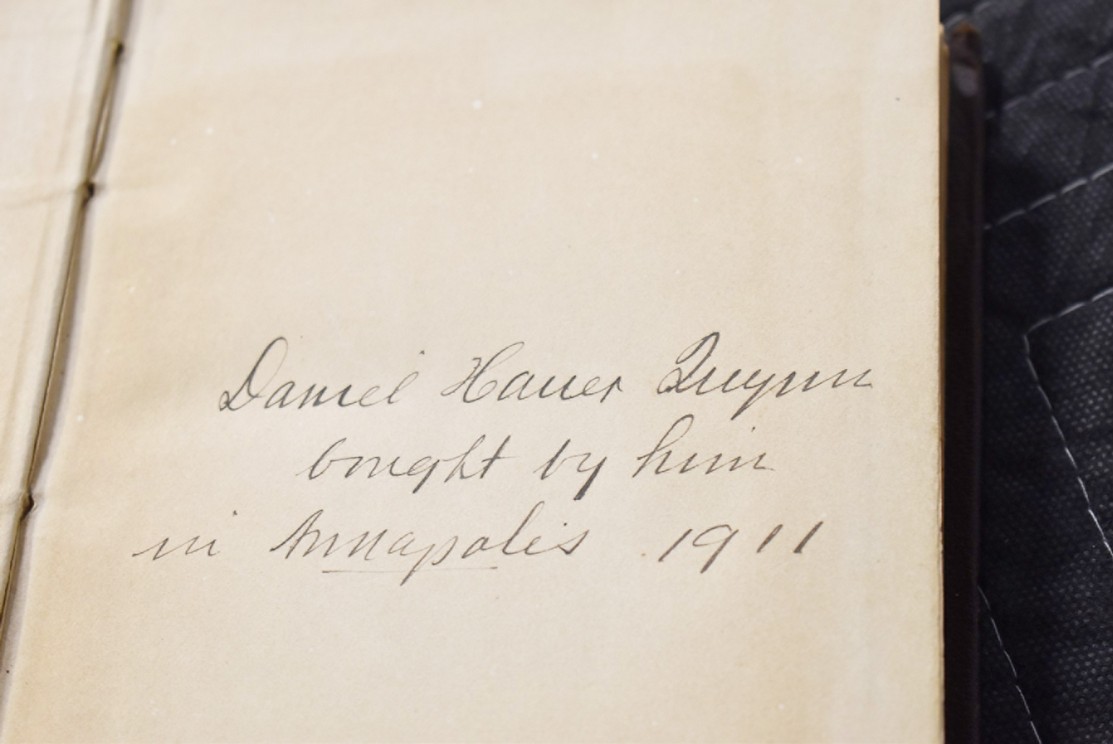 Daniel Hauer Quynn
bought by him
in Annapolis 1911